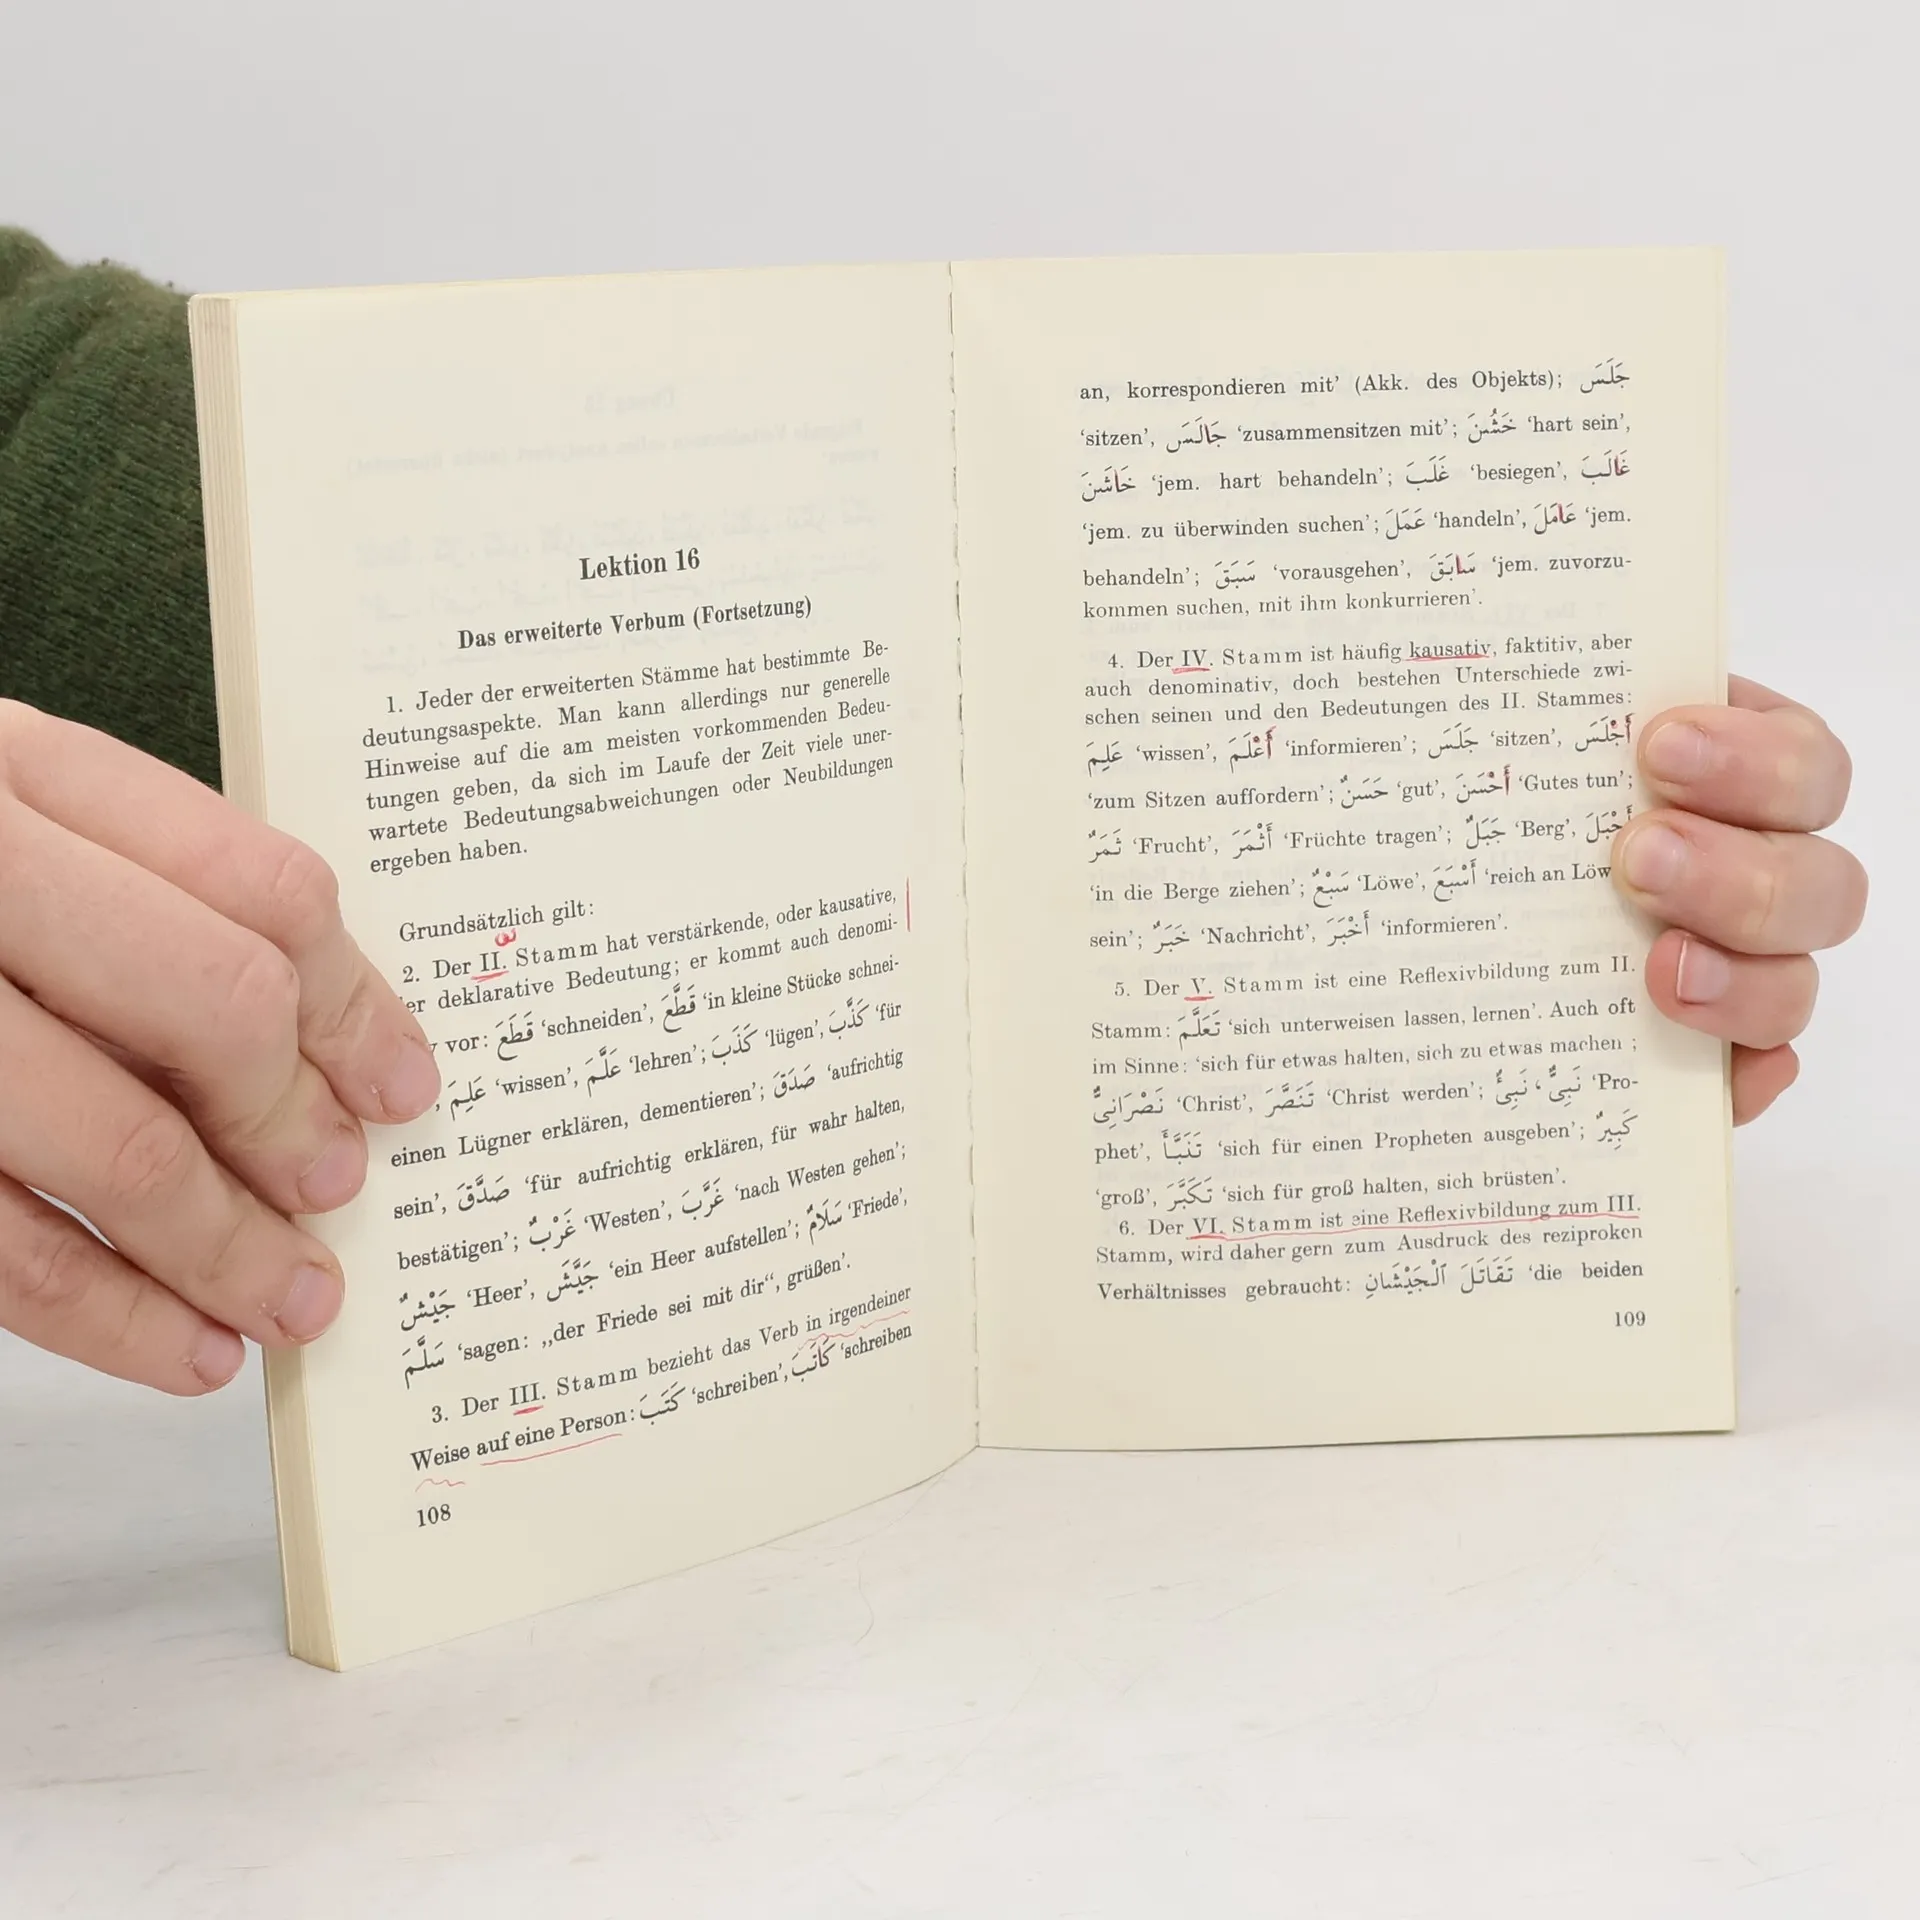 Lektion 16
Das erweiterte Verbum (Fortsetzung)
1. Jeder der erweiterten Stämme hat bestimmte Be-
deutungsaspekte. Man kann allerdings nur generelle
Hinweise auf die am meisten vorkommenden Bedeu-
tungen geben, da sich im Laufe der Zeit viele uner-
wartete Bedeutungsabweichungen oder Neubildungen
ergeben haben.
Grundsätzlich gilt:
2. Der II. Stamm hat verstärkende, oder kausative,
er deklarative Bedeutung; er kommt auch denomi-
vor: قَطَعَ ‘schneiden’, قَطَّعَ ‘in kleine Stücke schnei-
, عَلِمَ ‘wissen’, عَلَّمَ ‘lehren’; كَذَبَ ‘lügen’, كَذَّبَ ‘für
einen Lügner erklären, dementieren’; صَدَقَ ‘aufrichtig
sein’, صَدَّقَ ‘für aufrichtig erklären, für wahr halten,
bestätigen’; غَرْبٌ ‘Westen’, غَرَّبَ ‘nach Westen gehen’;
جَيْشٌ ‘Heer’, جَيَّشَ ‘ein Heer aufstellen’; سَلَامٌ ‘Friede’,
سَلَّمَ ‘sagen: „der Friede sei mit dir“, grüßen’.
3. Der III. Stamm bezieht das Verb in irgendeiner
Weise auf eine Person: كَتَبَ ‘schreiben’, كَاتَبَ ‘schreiben
108
an, korrespondieren mit’ (Akk. des Objekts); جَلَسَ
‘sitzen’, جَالَسَ ‘zusammensitzen mit’; خَشُنَ ‘hart sein’,
خَاشَنَ ‘jem. hart behandeln’; غَلَبَ ‘besiegen’, غَالَبَ
‘jem. zu überwinden suchen’; عَمَلَ ‘handeln’, عَامَلَ ‘jem.
behandeln’; سَبَقَ ‘vorausgehen’, سَابَقَ ‘jem. zuvorzu-
kommen suchen, mit ihm konkurrieren’.
4. Der IV. Stamm ist häufig kausativ, faktitiv, aber
auch denominativ, doch bestehen Unterschiede zwi-
schen seinen und den Bedeutungen des II. Stammes:
عَلِمَ ‘wissen’, أَعْلَمَ ‘informieren’; جَلَسَ ‘sitzen’, أَجْلَسَ
‘zum Sitzen auffordern’; حَسَنٌ ‘gut’, أَحْسَنَ ‘Gutes tun’;
ثَمَرٌ ‘Frucht’, أَثْمَرَ ‘Früchte tragen’; جَبَلٌ ‘Berg’, أَجْبَلَ
‘in die Berge ziehen’; سَبْعٌ ‘Löwe’, أَسْبَعَ ‘reich an Löw
sein’; خَبَرٌ ‘Nachricht’, أَخْبَرَ ‘informieren’.
5. Der V. Stamm ist eine Reflexivbildung zum II.
Stamm: تَعَلَّمَ ‘sich unterweisen lassen, lernen’. Auch oft
im Sinne: ‘sich für etwas halten, sich zu etwas machen’;
نَصْرَانِىٌّ ‘Christ’, تَنَصَّرَ ‘Christ werden’; نَبِىٌّ ، نَبِىْءٌ ‘Pro-
phet’, تَنَبَّأَ ‘sich für einen Propheten ausgeben’; كَبِيرٌ
‘groß’, تَكَبَّرَ ‘sich für groß halten, sich brüsten’.
6. Der VI. Stamm ist eine Reflexivbildung zum III.
Stamm, wird daher gern zum Ausdruck des reziproken
Verhältnisses gebraucht: تَقَاتَلَ ٱلْجَيْشَانِ ‘die beiden
109